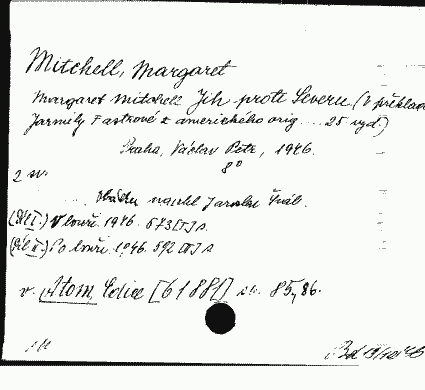 Mitchell, Margaret
Margaret Mitchell Jih proti Severu (V překladu
Jarmily Fastrové z amerického orig. ... 25 vyd.)
Praha, Václav Petr, 1946.
8°
2 sv.
Obálku navrhl Jaroslav Šváb.
(Díl I.) V bouři. 1946. 573 [I] s.
(Díl II.) Po bouři. 1946. 592 [II] s
v. Atom, Edice [61881] sv. 85, 86.